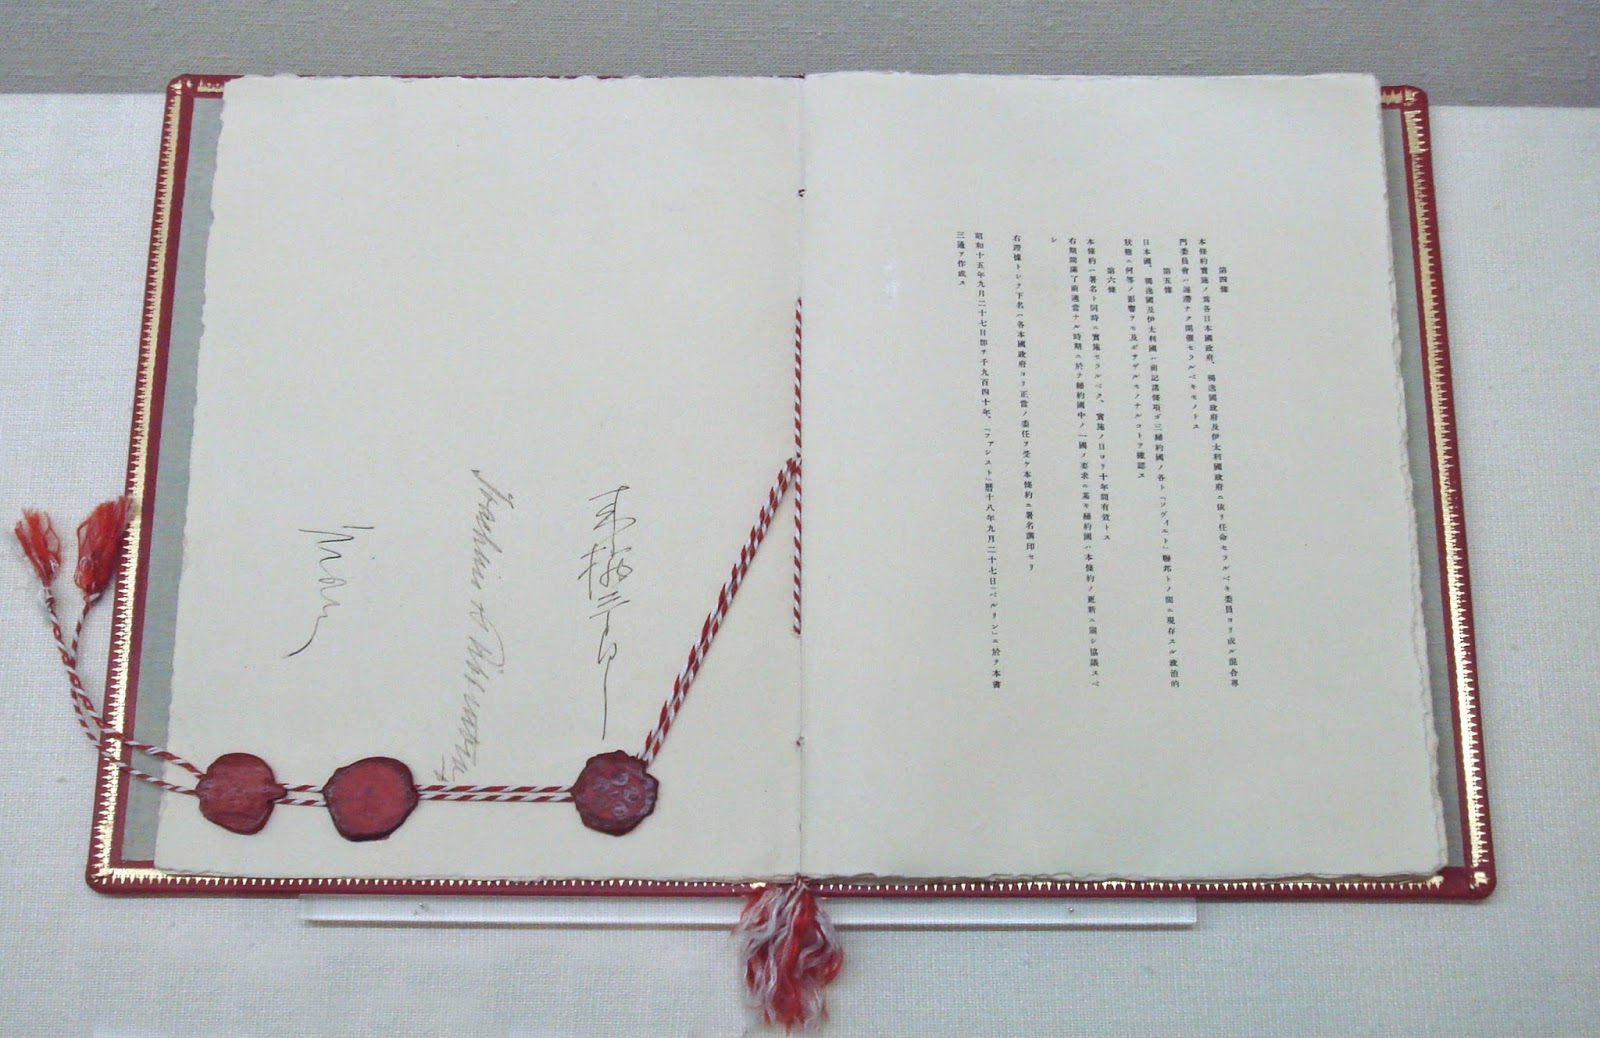 第四條
本條約實施ノ爲各日本國政府、獨逸國政府及伊太利國政府ニ依リ任命セラルベキ委員ヨリ成ル混合專
門委員會ハ遲滯ナク開催セラルベキモノトス
第五條
日本國、獨逸國及伊太利國ハ前記諸條項ガ三締約國ノ各ト「ソヴィエト」聯邦トノ間ニ現存スル政治的
狀態ニ何等ノ影響ヲモ及ボサザルモノナルコトヲ確認ス
第六條
本條約ハ署名ト同時ニ實施セラルベク、實施ノ日ヨリ十年間有效トス
右期間滿了前適當ナル時期ニ於テ締約國中ノ一國ノ要求ニ基キ締約國ハ本條約ノ更新ニ關シ協議スベ
シ
右證據トシテ下名ハ各本國政府ヨリ正當ノ委任ヲ受ケ本條約ニ署名調印セリ
昭和十五年九月二十七日卽チ千九百四十年、「ファシスト」曆十八年九月二十七日「ベルリン」ニ於テ本書
三通ヲ作成ス
来栖三郎